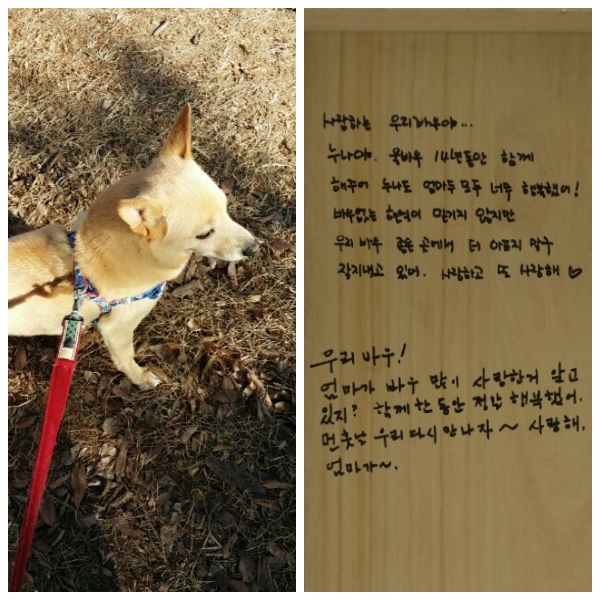 사랑하는 우리바우야...
누나야. 울바우 14년동안 함께
해주어 누나도 엄마두 모두 너무 행복했어!
바우없는 현실이 믿기지 않지만
우리 바우 좋은 곳에서 더 아프지 말구
잘지내고 있어. 사랑하고 또 사랑해 ♡
우리 바우!
엄마가 바우 많이 사랑한거 알고
있지? 함께 한 동안 정말 행복했어.
먼훗날 우리 다시 만나자 ~ 사랑해.
엄마가~.